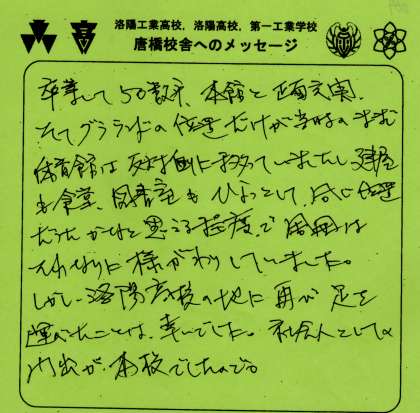 洛陽工業高校，洛陽高校，第一工業学校
唐橋校舎へのメッセージ
卒業して50数年、本館と正面玄実、
そしてグラランドの位置だけが当時のまま
体育館は反対側に移っていましたし、建屋
も食堂、図書室もひょっとして、同じ位置
だったかなと思える程度で周囲は
それなりに様がわりしていました。
しかし洛陽高校の地に再び足を
運べたことは、幸いでした。社会人としての
門出が、本校でしたので。